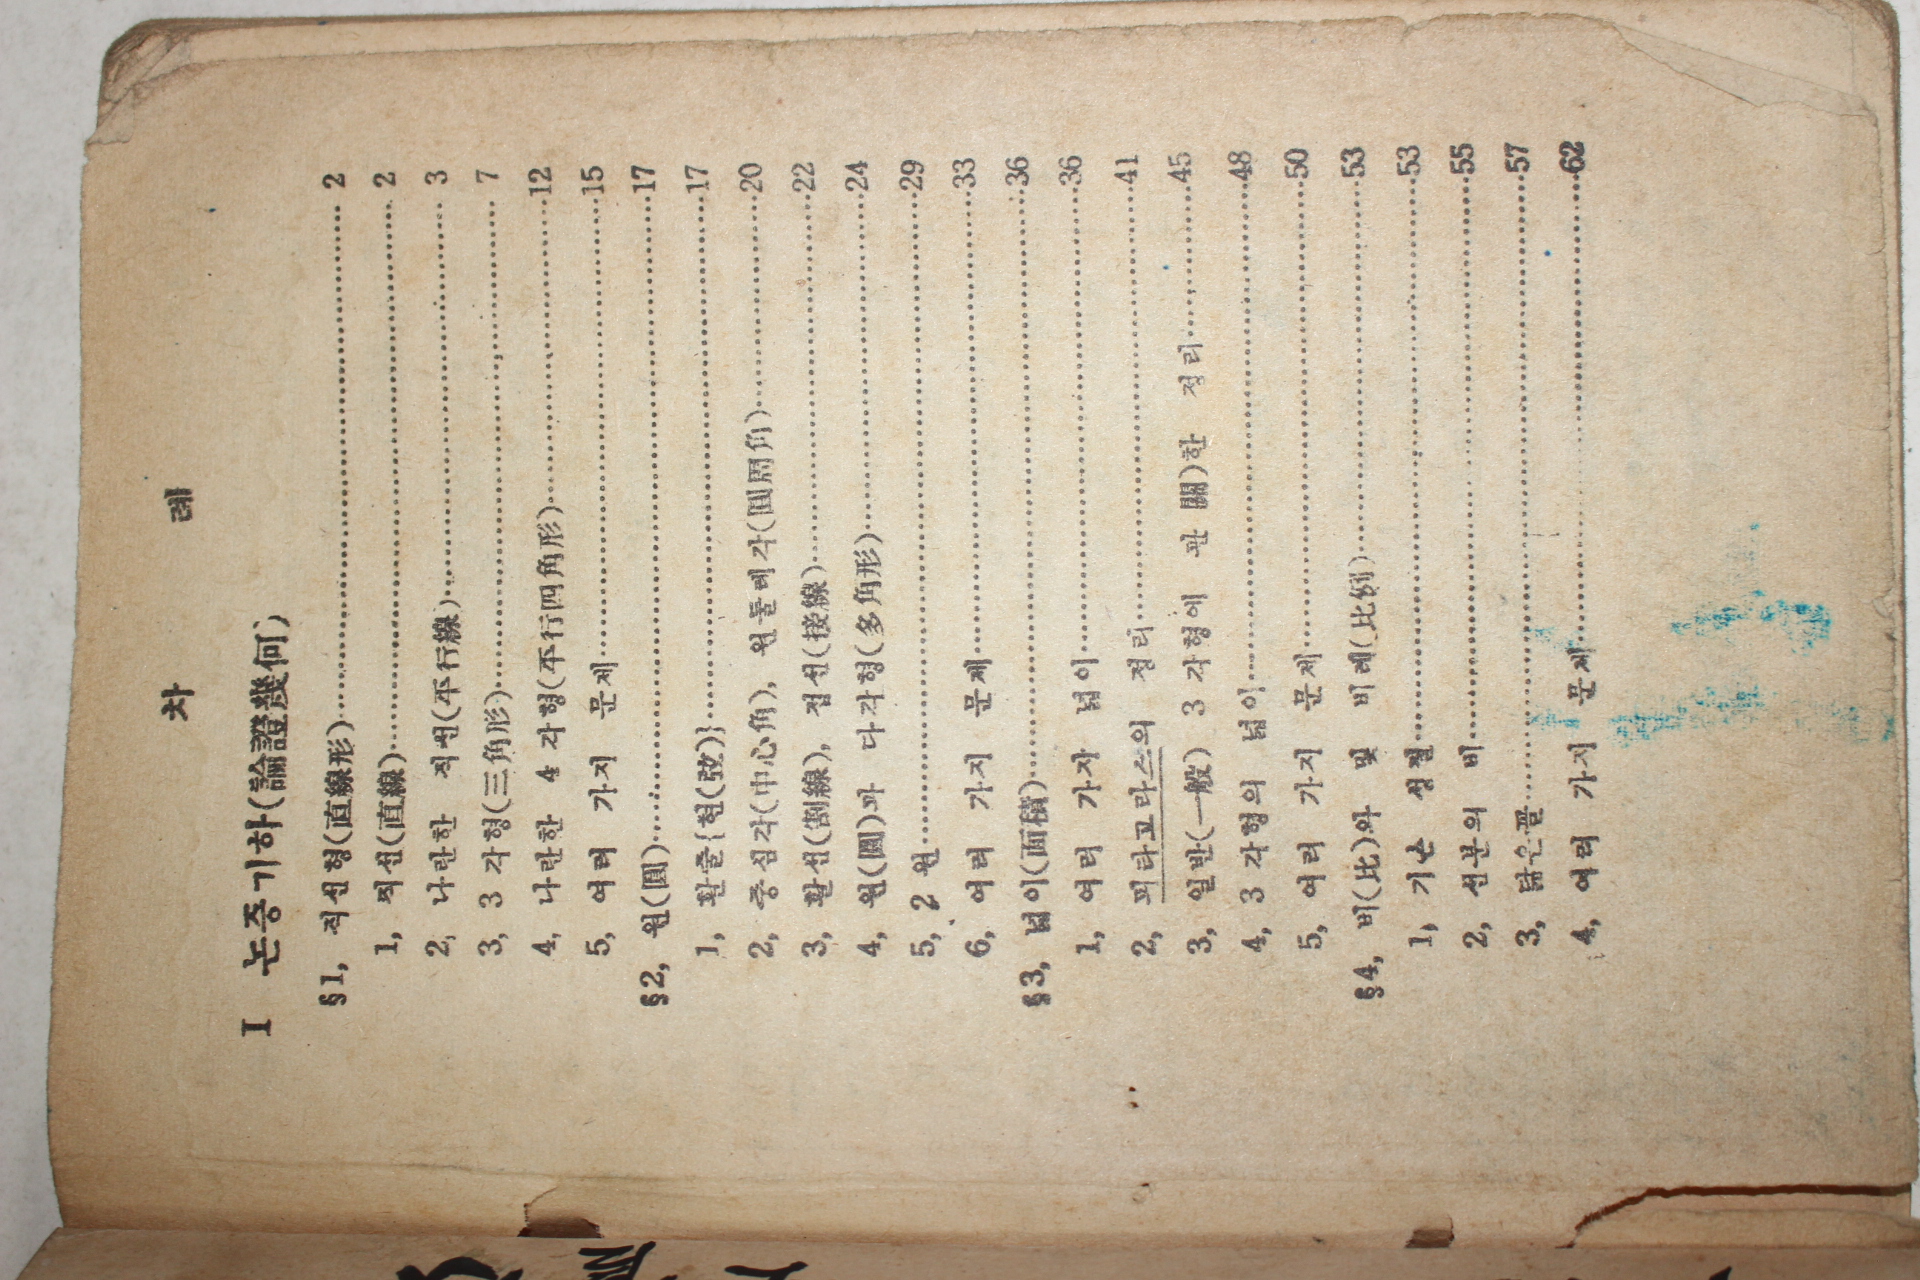 차 레
I 논증기하(論證幾何)
§1, 직선형(直線形)……2
1, 직선(直線)……2
2, 나란한 직선(平行線)……3
3, 3 각형(三角形)……7
4, 나란한 4 각형(平行四角形)……12
5, 여러 가지 문제……15
§2, 원(圓)……17
1, 활줄{현(弦)}……17
2, 중심각(中心角), 원둘레각(圓周角)……20
3, 활선(割線), 접선(接線)……22
4, 원(圓)과 다각형(多角形)……24
5, 2 원……29
6, 여러 가지 문제……33
§3, 넓이(面積)……36
1, 여러 가지 넓이……36
2, 피타고라스의 정리……41
3, 일반(一般) 3 각형에 관(關)한 정리……45
4, 3 각형의 넓이……48
5, 여러 가지 문제……50
§4, 비(比)와 및 비례(比例)……53
1, 기본 성질……53
2, 선분의 비……55
3, 닮은꼴……57
4, 여러 가지 문제……62